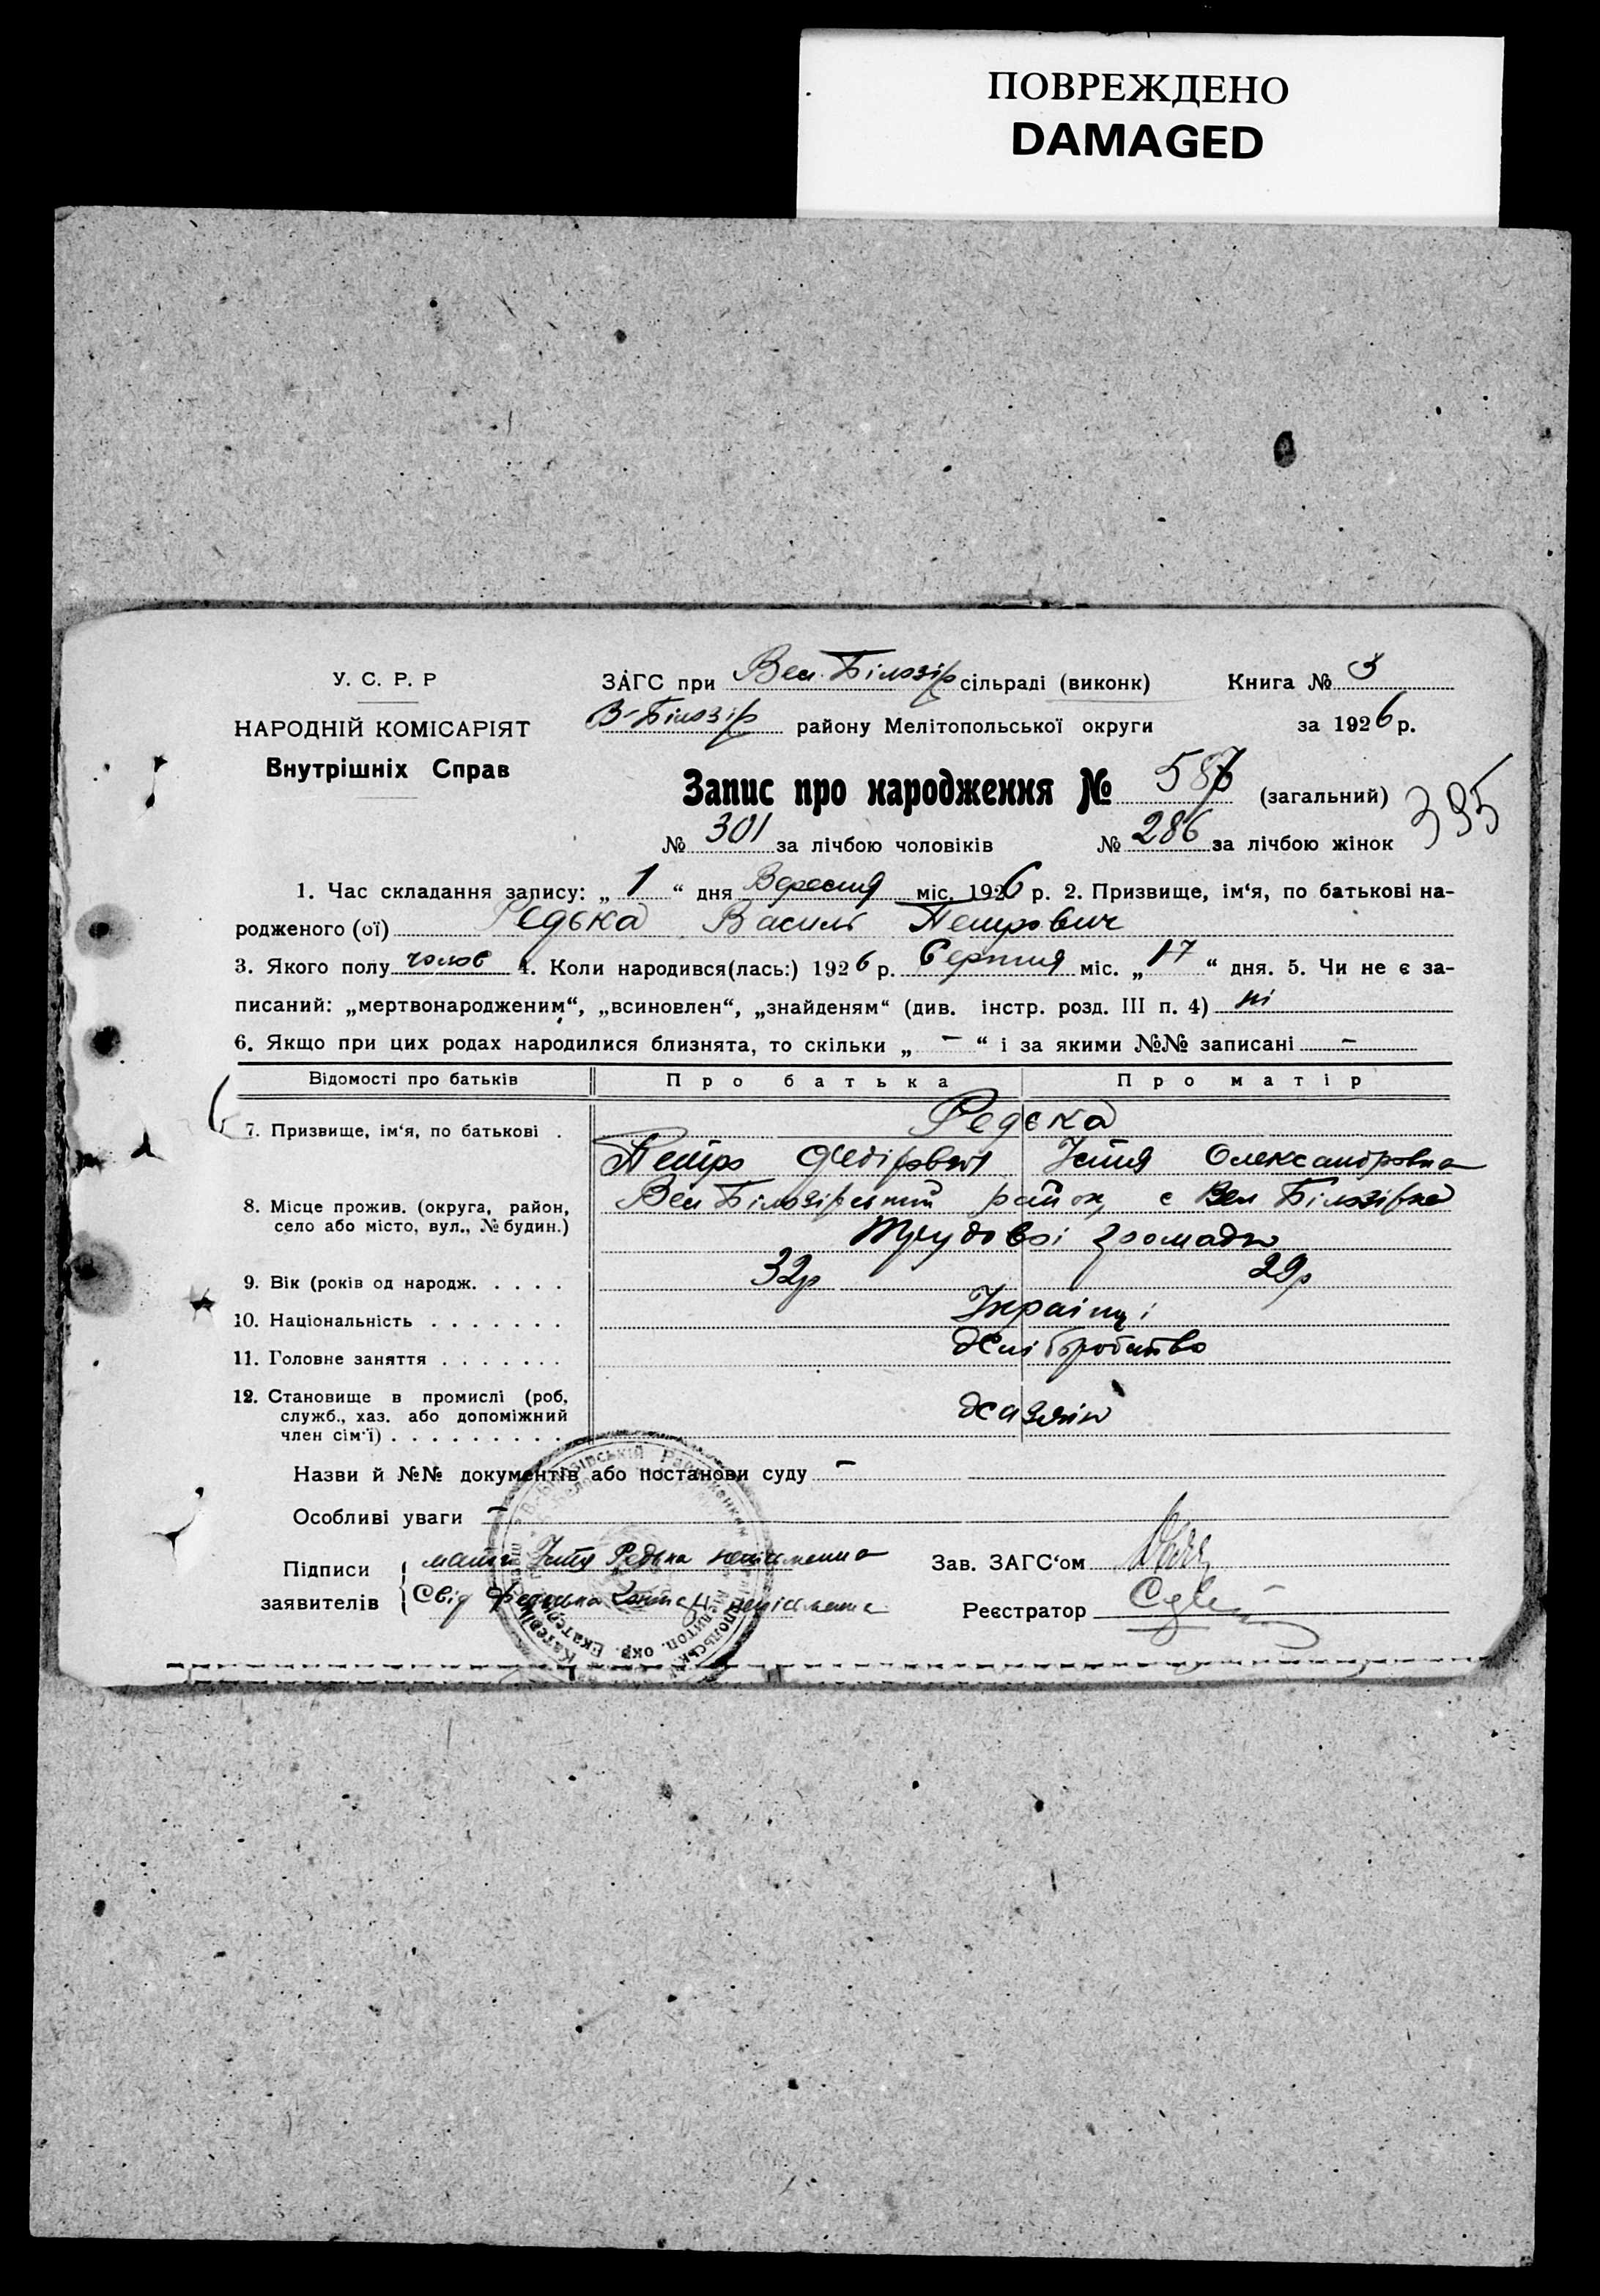 ПОВРЕЖДЕНО
DAMAGED
У. С. Р. Р
НАРОДНІЙ КОМІСАРІЯТ
Внутрішніх Справ
ЗАГС при Вел. Білозір сільраді (виконк) Книга № 3
В-Білозір району Мелітопольської округи за 1926 р.
Запис про народження № 587 (загальний)
395
№ 301 за лічбою чоловіків № 286 за лічбою жінок
1. Час складання запису: „ 1 “ дня Вересня міс. 1926 р. 2. Призвище, ім‘я, по батькові на-
родженого (ої) Редька Василь Петрович
3. Якого полу чолов 4. Коли народився(лась:) 1926 р. Серпня міс. „ 17 “ дня. 5. Чи не є за-
писаний: „мертвонародженим“, „всиновлен“, „знайденям“ (див. інстр. розд. III п. 4) ні
6. Якщо при цих родах народилися близнята, то скільки „ – “ і за якими №№ записані –
Відомості про батьків Про батька Про матір
Редька
7. Призвище, ім‘я, по батькові .
Петро Федірович Устя Олександровна
8. Місце прожив. (округа, район,
село або місто, вул., № будин.)
Вел Білозірський район, с Вел Білозірка
Трудової громади
9. Вік (років од народж. . . . . 32р 29р
10. Національність . . . . . . . Українці
11. Головне заняття . . . . . . . Хліборобство
12. Становище в промислі (роб,
служб., хаз. або допоміжний
член сім‘ї) . . . . . . . . .
Хазяїн
Назви й №№ документів або постанови суду –
Особливі уваги –
Підписи
заявителів
мати Устя Редька неписьменна
Свід
Зав. ЗАГС‘ом
Реєстратор